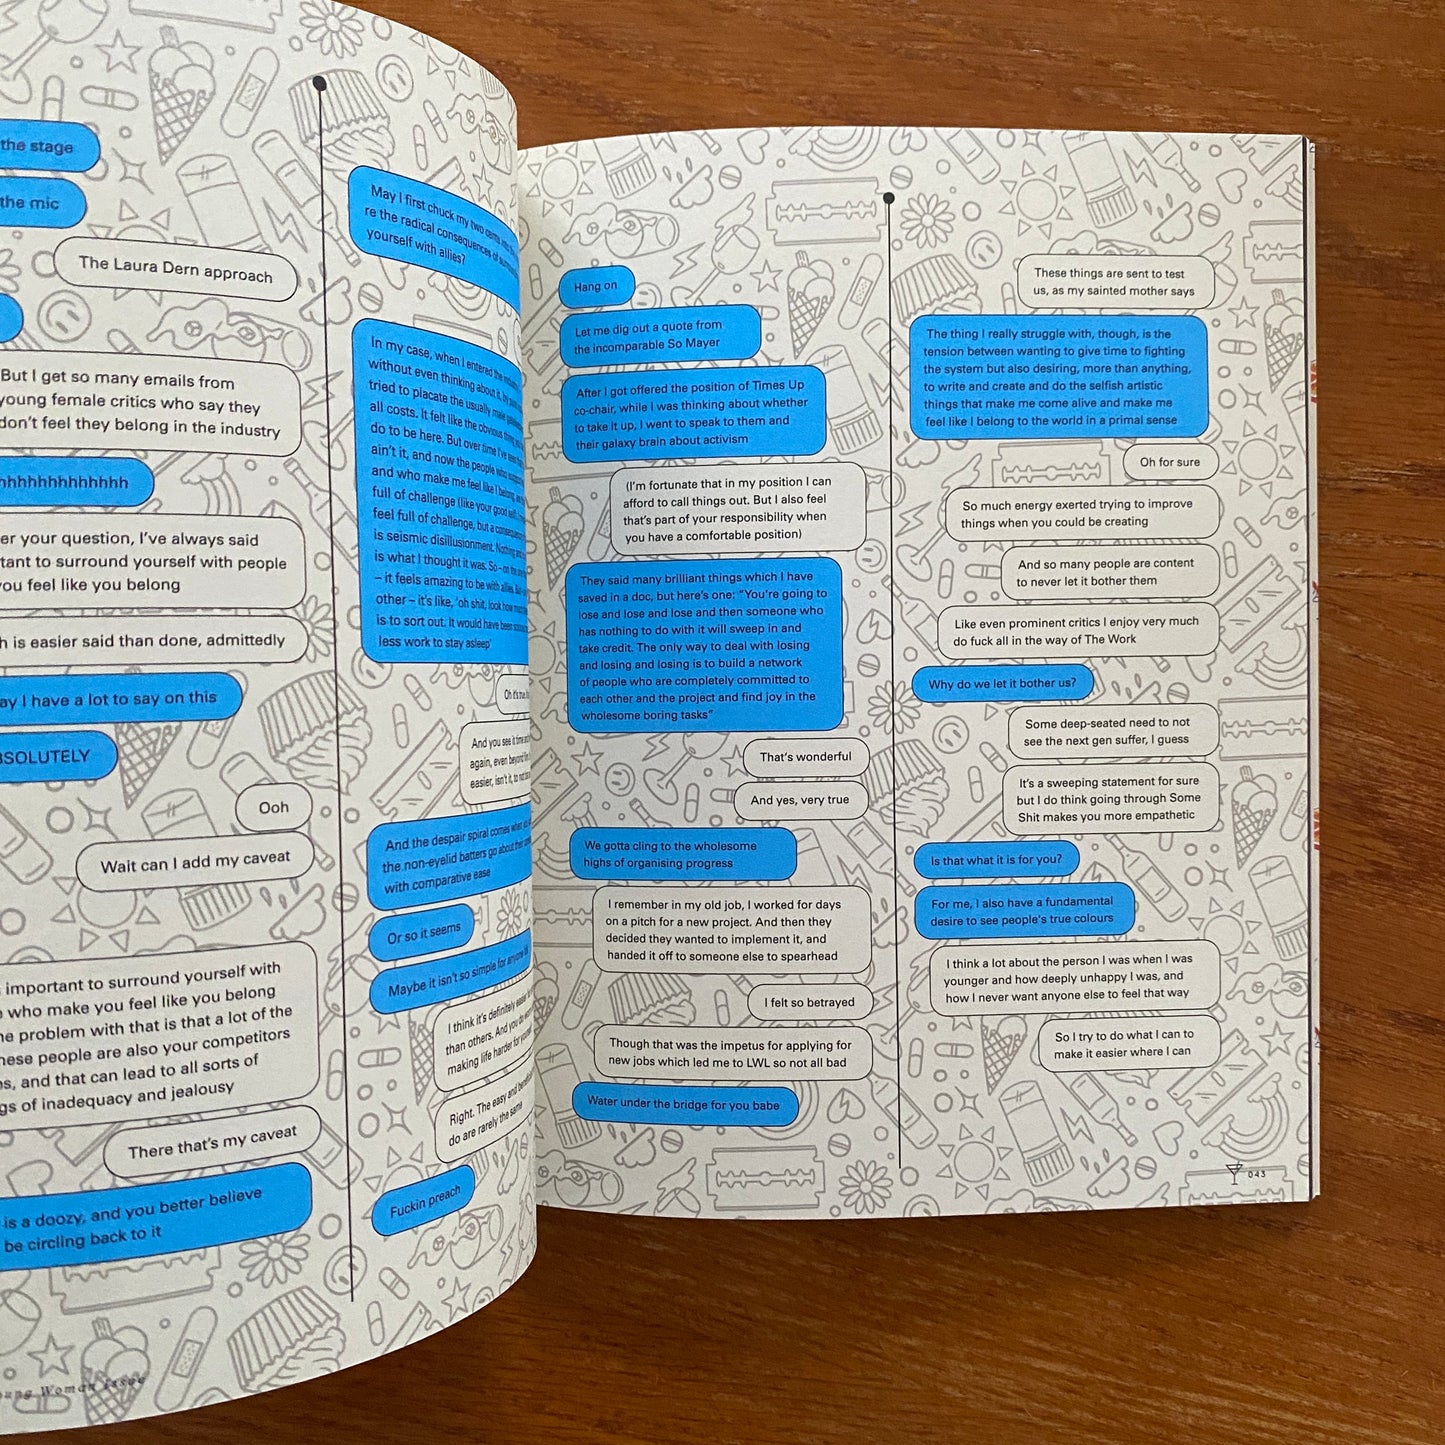 the stage
the mic
The Laura Dern approach
But I get so many emails from
young female critics who say they
don't feel they belong in the industry
hhhhhhhhhhhhh
er your question, I've always said
tant to surround yourself with people
you feel like you belong
h is easier said than done, admittedly
ay I have a lot to say on this
BSOLUTELY
Ooh
Wait can I add my caveat
important to surround yourself with
who make you feel like you belong
he problem with that is that a lot of the
these people are also your competitors
s, and that can lead to all sorts of
gs of inadequacy and jealousy
There that's my caveat
is a doozy, and you better believe
be circling back to it
oung Woman issue
May I first chuck my two cents into the
re the radical consequences of surrounding
yourself with allies?
In my case, when I entered the industry
without even thinking about it, my
tried to placate the usually male
all costs. It felt like the obvious thing
do to be here. But over time I've
ain't it, and now the people who
and who make me feel like I belong
full of challenge (like your good self)
feel full of challenge, but a consequence
is seismic disillusionment. Nothing
is what I thought it was. So – on the one
– it feels amazing to be with allies.
other – it's like, 'oh shit, look how much
is to sort out. It would have been
less work to stay asleep'
Oh it's true,
And you see it time and
again, even beyond
easier, isn't it, to not
And the despair spiral comes when
the non-eyelid batters go about their
with comparative ease
Or so it seems
Maybe it isn't so simple for anyone
I think it's definitely easier
than others. And you do
making life harder for
Right. The easy and beneficial
do are rarely the same
Fuckin preach
Hang on
Let me dig out a quote from
the incomparable So Mayer
After I got offered the position of Times Up
co-chair, while I was thinking about whether
to take it up, I went to speak to them and
their galaxy brain about activism
(I'm fortunate that in my position I can
afford to call things out. But I also feel
that's part of your responsibility when
you have a comfortable position)
They said many brilliant things which I have
saved in a doc, but here's one: "You're going to
lose and lose and lose and then someone who
has nothing to do with it will sweep in and
take credit. The only way to deal with losing
and losing and losing is to build a network
of people who are completely committed to
each other and the project and find joy in the
wholesome boring tasks"
That's wonderful
And yes, very true
We gotta cling to the wholesome
highs of organising progress
I remember in my old job, I worked for days
on a pitch for a new project. And then they
decided they wanted to implement it, and
handed it off to someone else to spearhead
I felt so betrayed
Though that was the impetus for applying for
new jobs which led me to LWL so not all bad
Water under the bridge for you babe
These things are sent to test
us, as my sainted mother says
The thing I really struggle with, though, is the
tension between wanting to give time to fighting
the system but also desiring, more than anything,
to write and create and do the selfish artistic
things that make me come alive and make me
feel like I belong to the world in a primal sense
Oh for sure
So much energy exerted trying to improve
things when you could be creating
And so many people are content
to never let it bother them
Like even prominent critics I enjoy very much
do fuck all in the way of The Work
Why do we let it bother us?
Some deep-seated need to not
see the next gen suffer, I guess
It's a sweeping statement for sure
but I do think going through Some
Shit makes you more empathetic
Is that what it is for you?
For me, I also have a fundamental
desire to see people's true colours
I think a lot about the person I was when I was
younger and how deeply unhappy I was, and
how I never want anyone else to feel that way
So I try to do what I can to
make it easier where I can
043